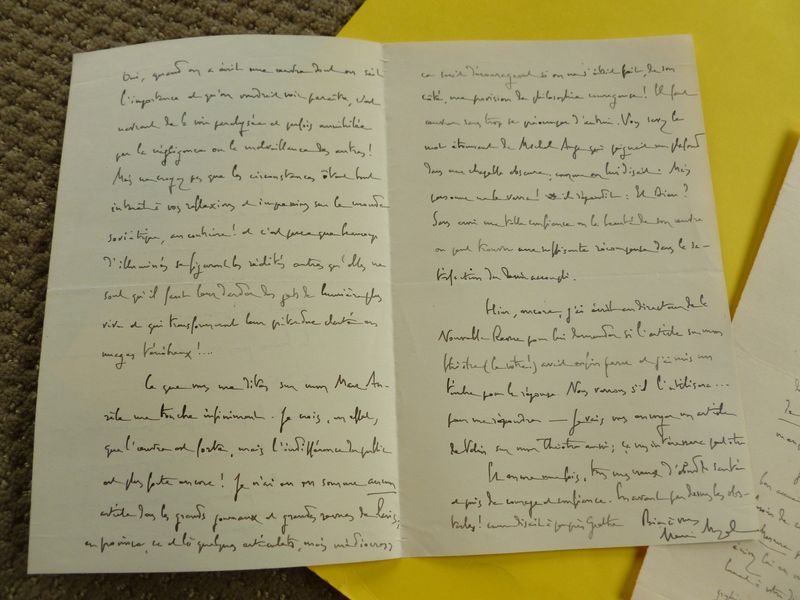 Oui, quand on a écrit une œuvre dont on sait
l'importance et qu'on voudrait voir paraître, c'est
navrant de la voir paralysée et parfois annihilée
par la négligence ou la malveillance des autres!
Mais ne croyez pas que les circonstances ôtent tout
intérêt à vos réflexions et impressions sur le monde
soviétique, au contraire! et c'est parce que beaucoup
d'illuminés se figurent les réalités autres qu'elles ne
sont qu'il faut leur darder des jets de lumière plus
vive et qui transforment leur prétendue clarté en
nuages ténébreux!...
Ce que vous me dites sur mon Marc Au-
rèle me touche infiniment. Je crois, en effet,
que l'œuvre est forte, mais l'indifférence du public
est plus forte encore! Je n'ai eu en somme aucun
article dans les grands journaux et grandes revues de Paris;
en province, ce et là quelques articulets, mais médiocres
ce serait décourageant si on ne s'était fait, de son
côté, une provision de philosophie courageuse! Il faut
œuvrer sans trop se préoccuper d'autrui. Vous savez le
mot étonnant de Michel Ange qui peignait un plafond
dans une chapelle obscure, comme on lui disait: Mais
personne ne le verra! il répondit: Et Dieu?
Sans avoir une telle confiance en la beauté de son œuvre
on peut trouver une suffisante récompense dans la sa-
tisfaction du devoir accompli.
Hier, encore, j'ai écrit au directeur de la
Nouvelle Revue pour lui demander si l'article sur mon
théâtre (le vôtre!) avait enfin passé et j'ai mis un
timbre pour la réponse. Nous verrons s'il l'utilisera...
pour me répondre — Je vais vous envoyer un article
de sur mon Théâtre aussi; ça vous intéressera peut-être
Et encore une fois, tous mes vœux d'abord de santé
et puis de courage et confiance. En avant par dessus les obs-
tacles! comme disait à peu près Goethe
Bien à vous